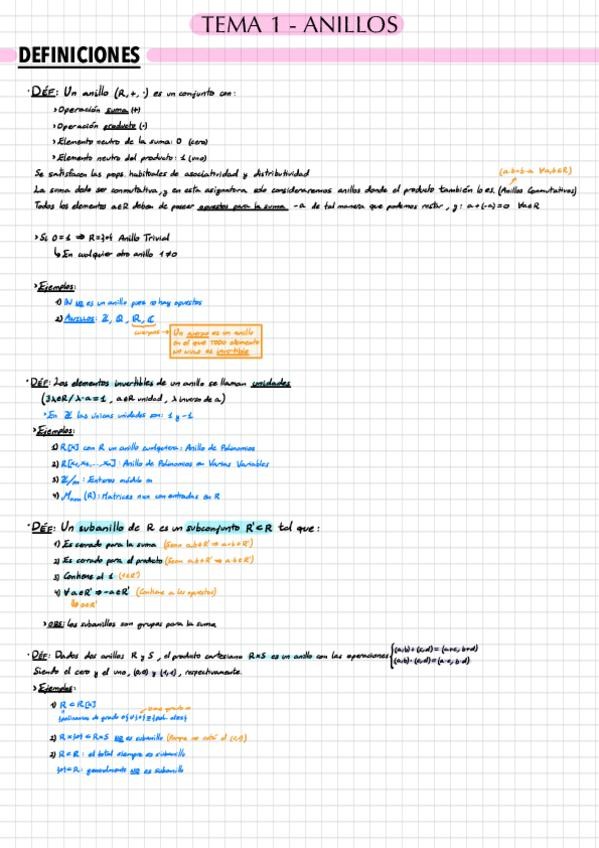 TEMA 1 - ANILLOS
DEFINICIONES
· DÉF: Un anillo (R,+,·) es un conjunto con:
> Operación suma (+)
> Operación producto (·)
> Elemento neutro de la suma: 0 (cero)
> Elemento neutro del producto: 1 (uno)
Se satisfacen las props. habituales de asociatividad y distributividad
(a·b=b·a ∀a,b∈R)
La suma debe ser conmutativa, y en esta asignatura solo consideraremos anillos donde el producto también lo es. (Anillos Conmutativos)
Todos los elementos a∈R deben de poseer opuestos para la suma -a de tal manera que podemos restar, y: a+(-a)=0 ∀a∈R
> Si 0=1 ⇒ R={0} Anillo Trivial
↳ En cualquier otro anillo 1≠0
> Ejemplos:
1) ℕ NO es un anillo pues no hay opuestos
2) Anillos: ℤ, ℚ, ℝ, ℂ
cuerpos → Un cuerpo es un anillo
en el que TODO elemento
no nulo es invertible
· DÉF: Los elementos invertibles de un anillo se llaman unidades
(∃λ∈R / λ·a=1, a∈R unidad, λ inverso de a)
> En ℤ las únicas unidades son: 1 y -1
> Ejemplos:
1) R[x] con R un anillo cualquiera: Anillo de Polinomios
2) R[x₁,x₂,...,xₙ]: Anillo de Polinomios en Varias Variables
3) ℤ/m: Enteros módulo m
4) Mₙₓₙ(R): Matrices nxn con entradas en R
· DÉF: Un subanillo de R es un subconjunto R'⊂R tal que:
1) Es cerrado para la suma (Sean a,b∈R' ⇒ a+b∈R')
2) Es cerrado para el producto (Sean a,b∈R' ⇒ a·b∈R')
3) Contiene al 1 (1∈R')
4) ∀a∈R' ⇒ -a∈R' (Contiene a los opuestos)
↳ 0∈R'
> OBS: los subanillos son grupos para la suma
· DÉF: Dados dos anillos R y S, el producto cartesiano R×S es un anillo con las operaciones {(a,b)+(c,d)=(a+c, b+d)
(a,b)·(c,d)=(a·c, b·d)
Siendo el cero y el uno, (0,0) y (1,1), respectivamente.
> Ejemplos:
1) R ⊂ R[x]
2) R×{0} ⊂ R×S NO es subanillo (Porque no está el (1,1))
3) R⊂R: el total siempre es subanillo
{0}⊂R: generalmente NO es subanillo